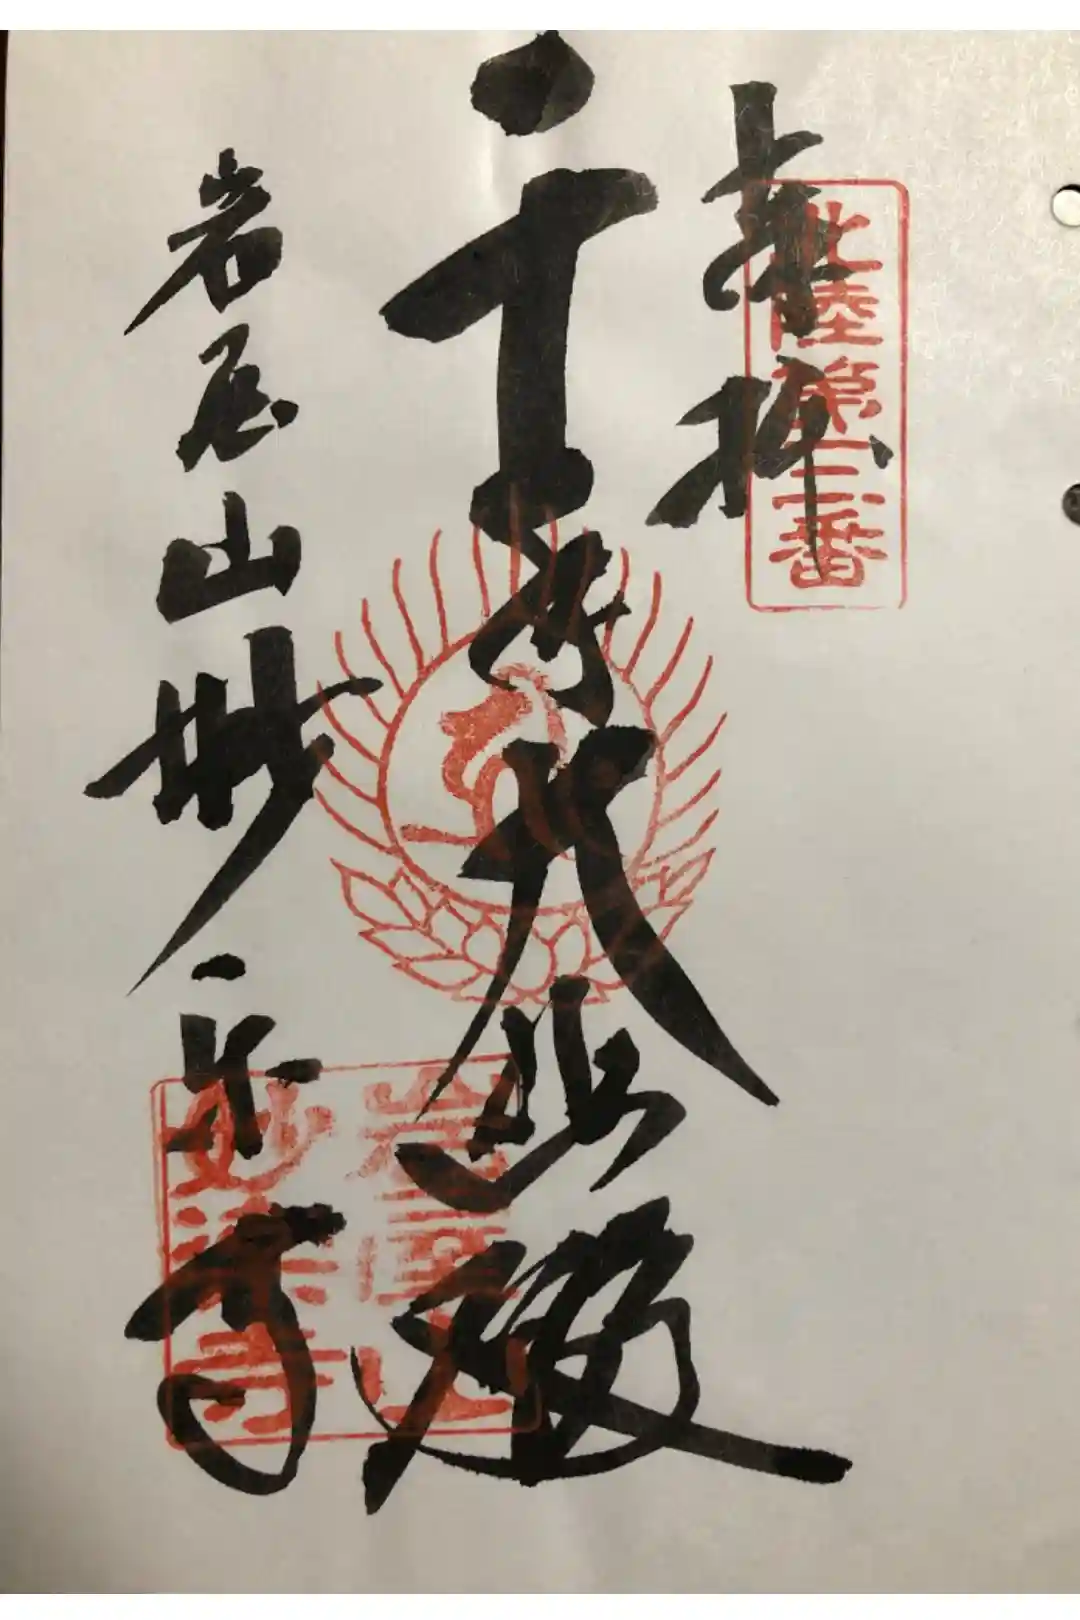 奉拝
北陸第三番
千手大悲殿
岩屋山妙楽寺
岩屋山
妙楽寺